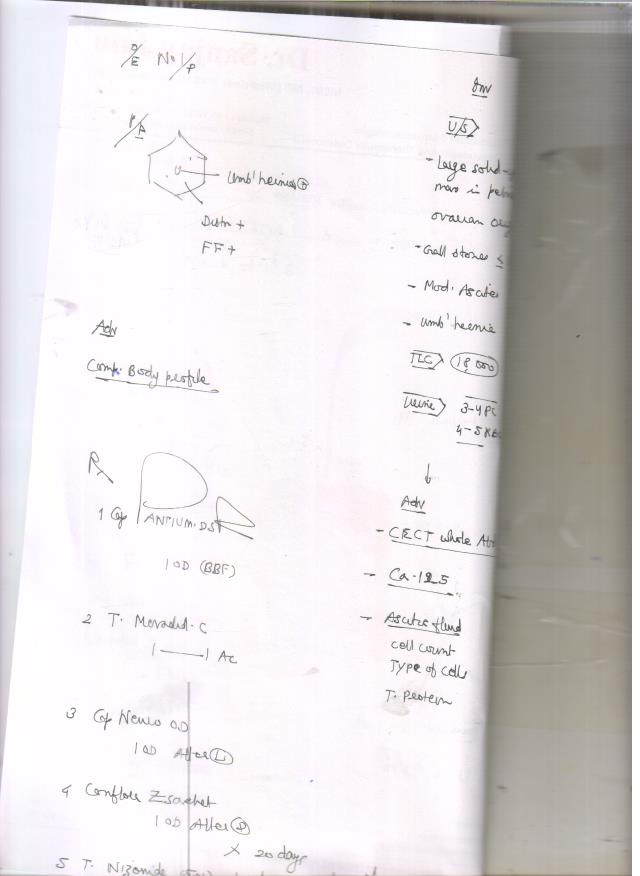 O/E No1/P
P/A
Umb' hernia ⊕
Distn +
FF +
Adv
Comp. Body profile
Rx
1 Cap PANTIUM-DSR
1 OD (BBF)
2 T.
1——1 AC
3 Cap Neuro OD
1 OD After (L)
4 Conflora Z sachet
1 OD After
× 20 days
5 T. Nizonide
Inv
U/S
- Large solid-
mass in
ovarian
- Gall stones
- Mod. Ascites
- umb' hernia
TLC 18,000
Urine 3-4 PC
4-5 RBC
↓
Adv
- CECT whole Ab
- Ca-125
- Ascites fluid
cell count
Type of cells
T. protein